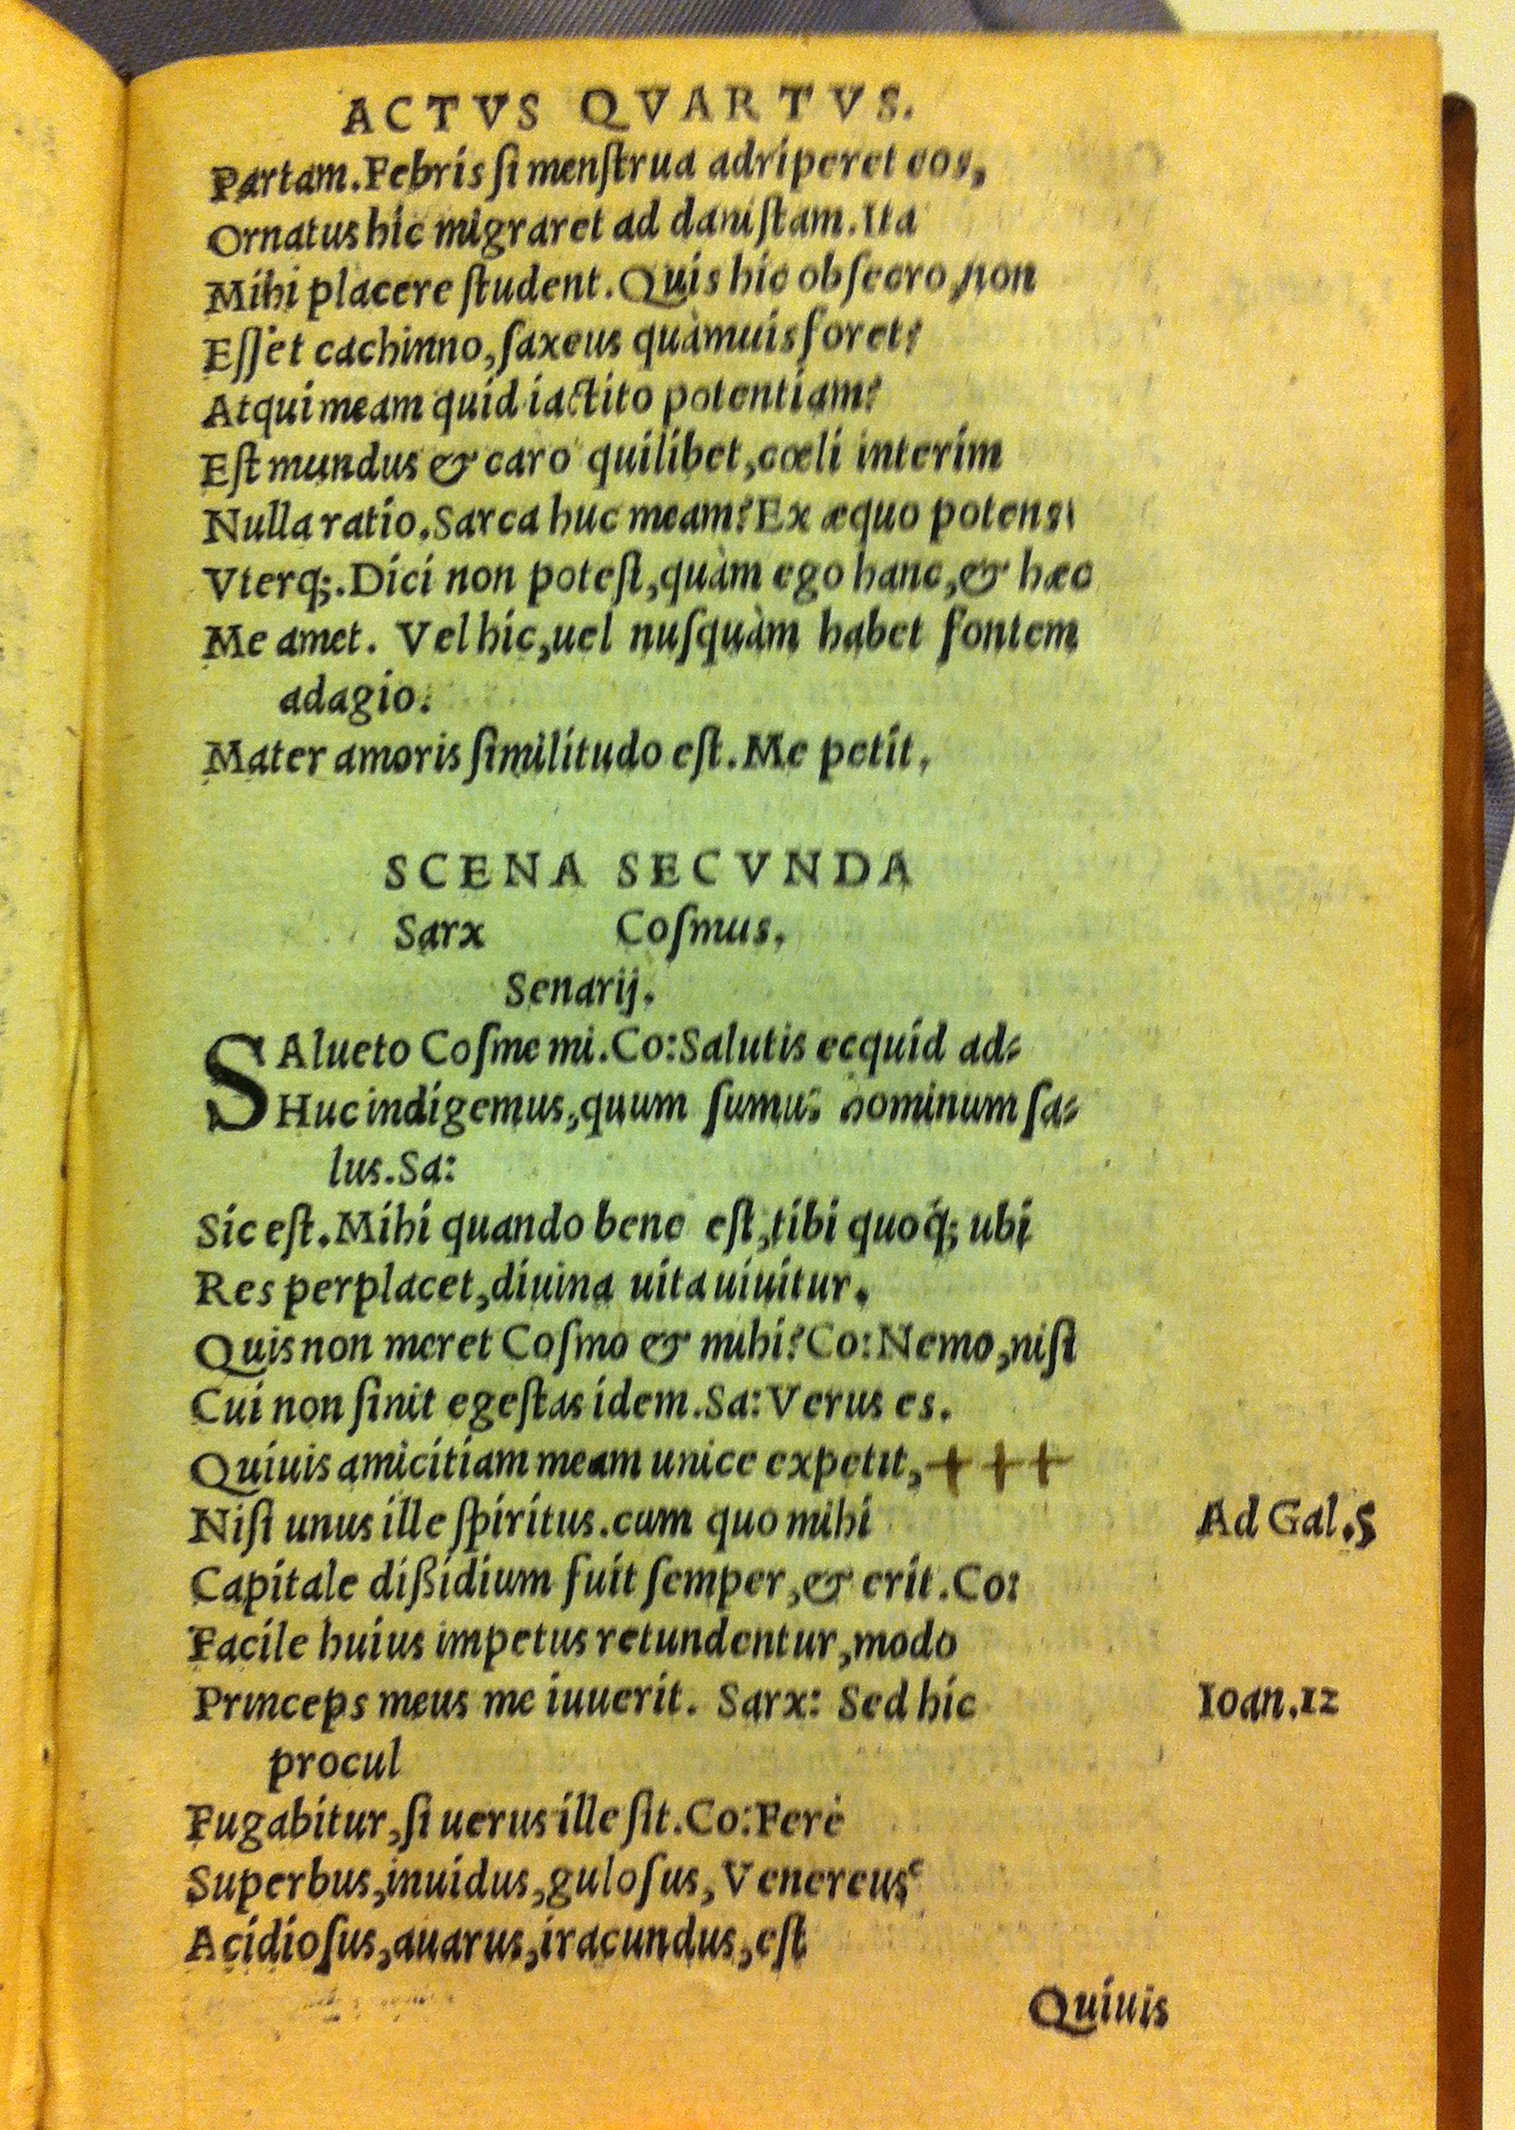 ACTVS QVARTVS.
Partam.Febris ſi menſtrua adriperet eos,
Ornatus hic migraret ad daniſtam.Ita
Mihi placere ſtudent.Quis hic obſecro,non
Eſſet cachinno,ſaxeus quàmuis foret?
Atqui meam quid iactito potentiam?
Eſt mundus & caro quilibet,cœli interim
Nulla ratio.Sarca huc meam?Ex æquo potens
Vterq;.Dici non poteſt,quàm ego hanc,& hæc
Me amet. Vel hic,uel nuſquàm habet fontem
adagio.
Mater amoris ſimilitudo eſt.Me petit,
SCENA SECVNDA
Sarx Coſmus,
Senarij.
SAlueto Coſme mi.Co:Salutis ecquid ad-
Huc indigemus,quum ſumus hominum ſa-
lus.Sa:
Sic eſt.Mihi quando bene eſt,tibi quoq; ubi
Res perplacet,diuina uita uiuitur.
Quis non meret Coſmo & mihi?Co:Nemo,niſi
Cui non ſinit egeſtas idem.Sa:Verus es.
Quiuis amicitiam meam unice expetit,+++
Niſi unus ille ſpiritus.cum quo mihi
Ad Gal.5
Capitale dißidium fuit ſemper,& erit.Co:
Facile huius impetus retundentur,modo
Princeps meus me iuuerit. Sarx: Sed hic
Ioan.12
procul
Fugabitur,ſi uerus ille ſit.Co:Ferè
Superbus,inuidus,guloſus,Venereus
Acidioſus,auarus,iracundus,eſt
Quiuis